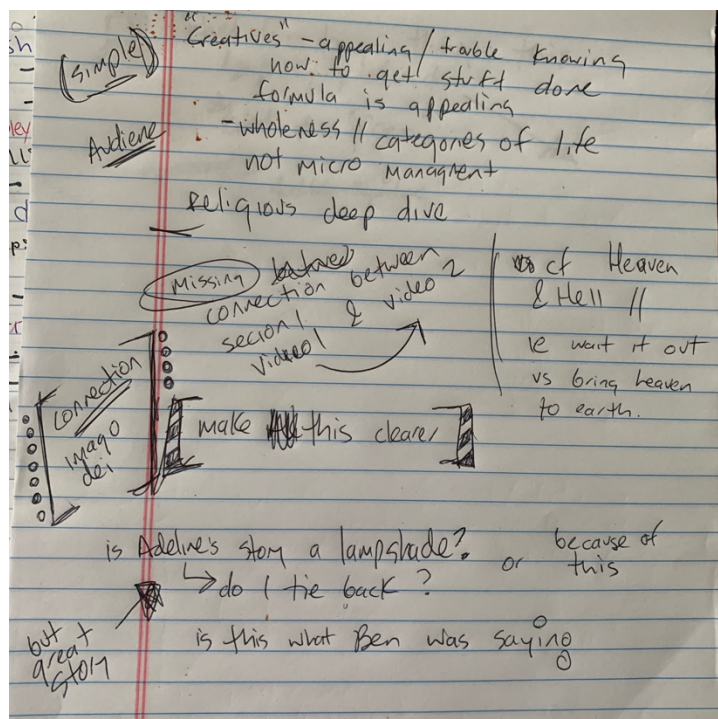 (simple)
"Creatives" - appealing / trouble knowing
how to get stuff done
formula is appealing
Audiene
- wholeness // categories of life
not micro managment
religious deep dive
Missing
connection between
secion 1 & video 2
video 1
cf Heaven
& Hell //
ie wait it out
vs bring heaven
to earth.
connection
imago
dei
make this clearer
is Adeline's story a lampshade?
or because of
this
do I tie back?
but
great
story
is this what Ben was saying